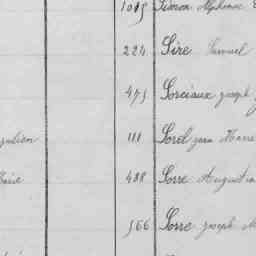 1015 Simon Alphonse
224 Sire Samuel
475 Sorciaux joseph
julien 111 Sorel jean Marie
Marie 488 Sorre Augustin
566 Sorre joseph M